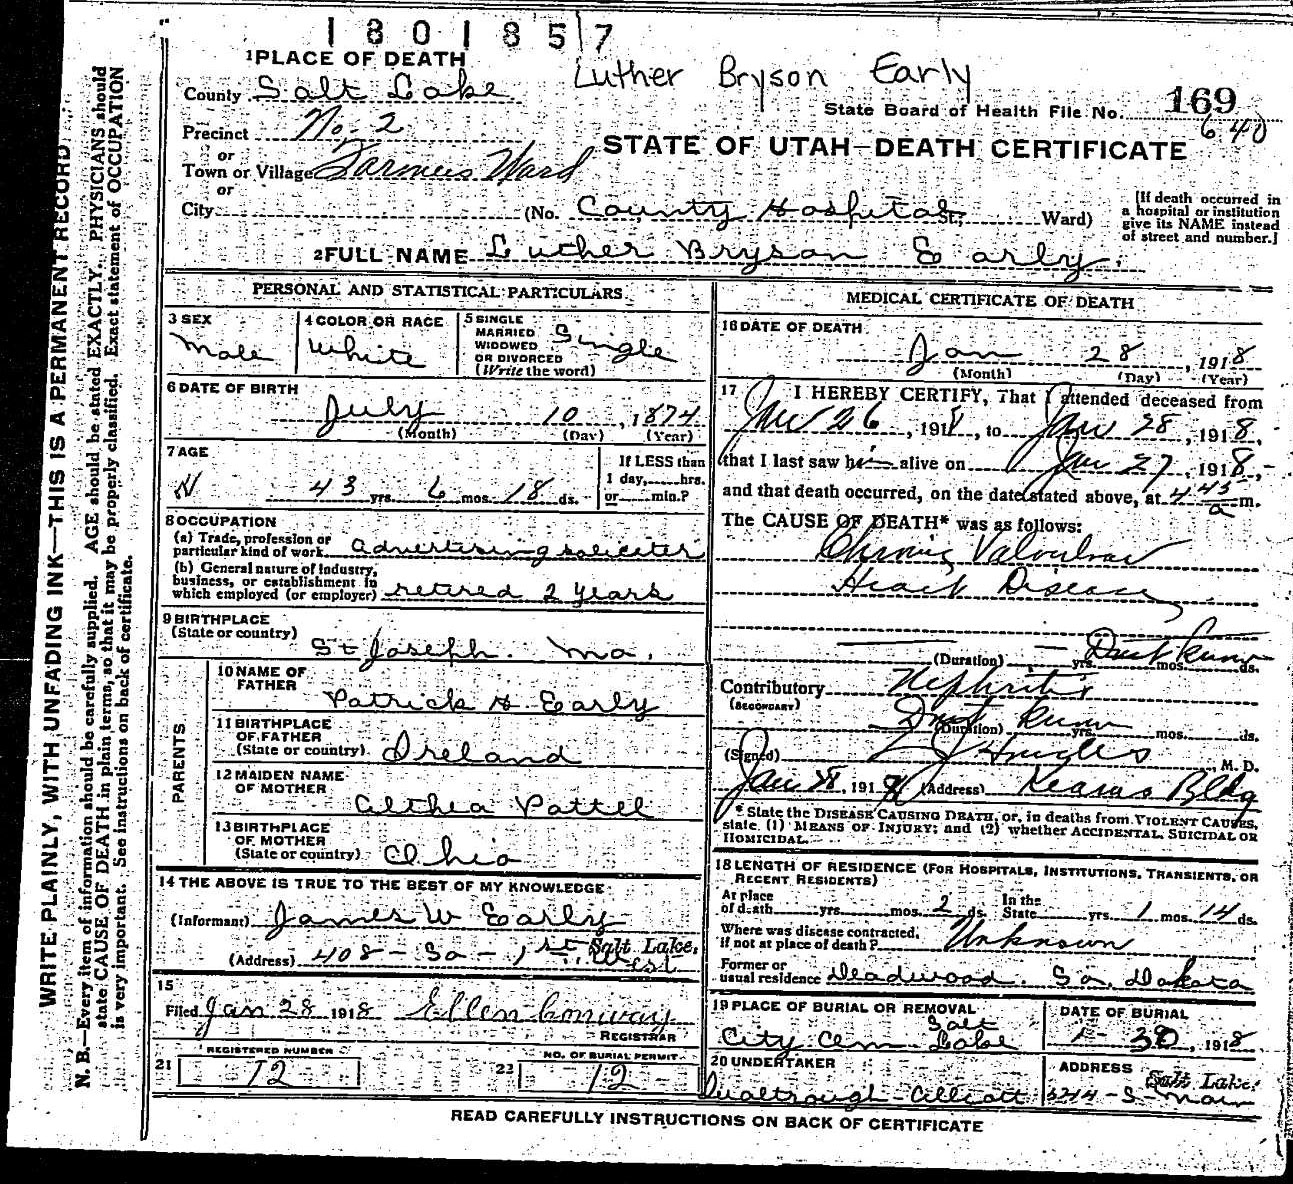 1801857
Luther Bryson Early
1 PLACE OF DEATH
County Salt Lake
State Board of Health File No. 169
640
Precinct No. 2
or
Town or Village Farmers Ward
or
STATE OF UTAH—DEATH CERTIFICATE
City (No. County Hospital St; Ward)
[If death occurred in
a hospital or institution
give its NAME instead
of street and number.]
2 FULL NAME Luther Bryson Early.
PERSONAL AND STATISTICAL PARTICULARS
3 SEX
Male
4 COLOR OR RACE
White
5 SINGLE
MARRIED
WIDOWED
OR DIVORCED
(Write the word)
Single
6 DATE OF BIRTH
July 10, 1874
(Month) (Day) (Year)
7 AGE
43 yrs. 6 mos. 18 ds.
If LESS than
1 day, hrs.
or min.?
8 OCCUPATION
(a) Trade, profession or
particular kind of work advertising soliciter
(b) General nature of industry,
business, or establishment in
which employed (or employer) retired 2 years
9 BIRTHPLACE
(State or country)
St Joseph. Mo.
PARENTS
10 NAME OF
FATHER
Patrick H Early
11 BIRTHPLACE
OF FATHER
(State or country) Ireland
12 MAIDEN NAME
OF MOTHER
Althea Pattee
13 BIRTHPLACE
OF MOTHER
(State or country) Ohio
14 THE ABOVE IS TRUE TO THE BEST OF MY KNOWLEDGE
(Informant) James W Early
(Address) 408 - So - 1st West Salt Lake.
15
Filed Jan 28 1918 Ellen Conway
REGISTRAR
21 REGISTERED NUMBER
12
22 NO. OF BURIAL PERMIT
12
MEDICAL CERTIFICATE OF DEATH
16 DATE OF DEATH
Jan 28, 1918
(Month) (Day) (Year)
17 I HEREBY CERTIFY, That I attended deceased from
Jan 26, 1918, to Jan 28, 1918,
that I last saw him alive on Jan 27, 1918,
and that death occurred, on the date stated above, at 4 45 a m.
The CAUSE OF DEATH* was as follows:
Chronic Valvular
Heart Disease
(Duration) yrs. mos. ds.
Dont Know
Contributory Nephritis
(SECONDARY)
Dont Know
(Duration) yrs. mos. ds.
(Signed) Hughes, M. D.
Jan 28, 1918 (Address) Kearns Bldg
* State the DISEASE CAUSING DEATH, or, in deaths from VIOLENT CAUSES,
state (1) MEANS OF INJURY; and (2) whether ACCIDENTAL, SUICIDAL OR
HOMICIDAL.
18 LENGTH OF RESIDENCE (FOR HOSPITALS, INSTITUTIONS, TRANSIENTS, OR
RECENT RESIDENTS)
At place
of death yrs. mos. 2 ds.
In the
State yrs. 1 mos. 14 ds.
Where was disease contracted,
if not at place of death? Unknown
Former or
usual residence Deadwood. So. Dakota
19 PLACE OF BURIAL OR REMOVAL
City Cem Salt Lake
DATE OF BURIAL
1 - 30, 1918
20 UNDERTAKER
ADDRESS
Salt Lake.
S - Main
READ CAREFULLY INSTRUCTIONS ON BACK OF CERTIFICATE
WRITE PLAINLY, WITH UNFADING INK—THIS IS A PERMANENT RECORD
N. B.—Every item of information should be carefully supplied. AGE should be stated EXACTLY. PHYSICIANS should
state CAUSE OF DEATH in plain terms, so that it may be properly classified. Exact statement of OCCUPATION
is very important. See instructions on back of certificate.